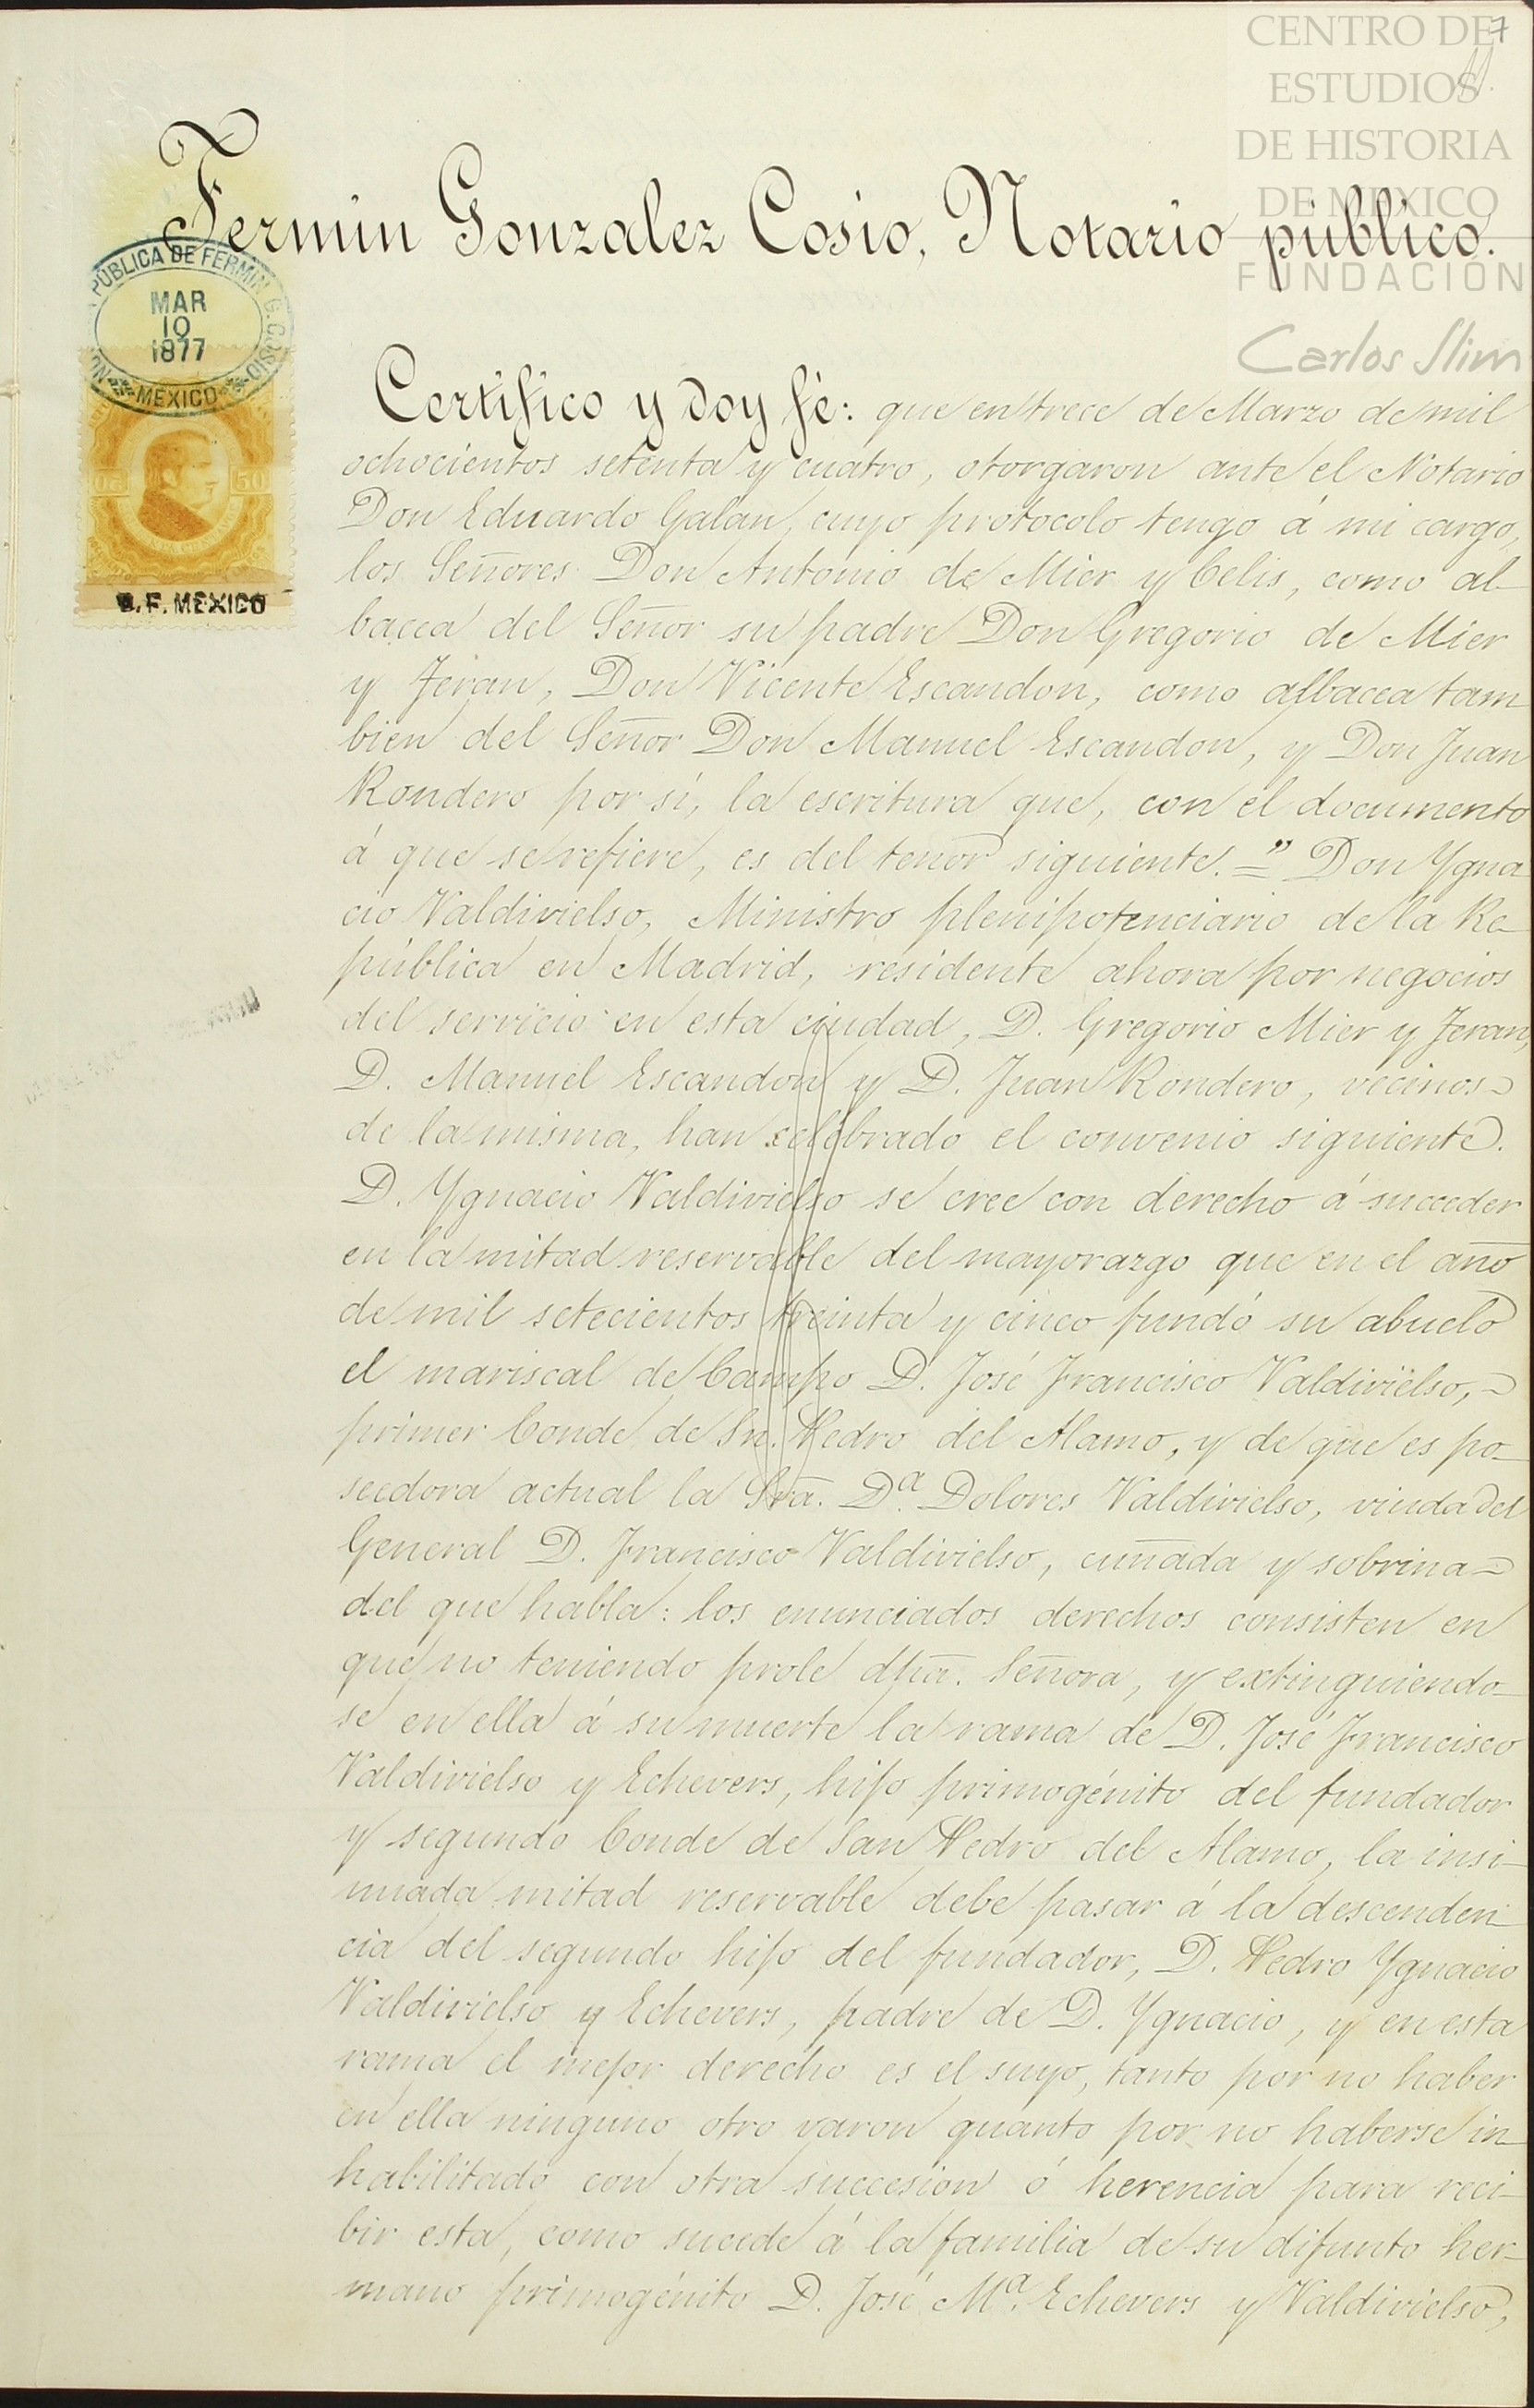 CENTRO DE
ESTUDIOS
DE HISTORIA
DE MÉXICO
FUNDACIÓN
Carlos Slim
7
11.
Fermin Gonzalez Cosio, Notario público.
PÚBLICA DE FERMIN G. COSIO
MAR
10
1877
MEXICO
50
D. F. MEXICO
Certifico y doy fé: que en trece de Marzo de mil
ochocientos setenta y cuatro, otorgaron ante el Notario
Don Eduardo Galan, cuyo protocolo tengo á mi cargo,
los Señores Don Antonio de Mier y Celis, como al-
bacea del Señor su padre Don Gregorio de Mier
y Teran, Don Vicente Escandon, como albacea tam
bien del Señor Don Manuel Escandon, y Don Juan
Rondero por sí, la escritura que, con el documento
á que se refiere, es del tenor siguiente. = " Don Ygna
cio Valdivielso, Ministro plenipotenciario de la Re-
pública en Madrid, residente ahora por negocios
del servicio en esta ciudad, D. Gregorio Mier y Teran,
D. Manuel Escandon y D. Juan Rondero, vecinos
de la misma, han celebrado el convenio siguiente.
D. Ygnacio Valdivielso se cree con derecho á succeder
en la mitad reservable del mayorazgo que en el año
de mil setecientos treinta y cinco fundó su abuelo
el mariscal de Campo D. José Francisco Valdivielso,
primer Conde de Sn. Pedro del Alamo, y de que es po-
seedora actual la Sra. Dª. Dolores Valdivielso, viuda del
General D. Francisco Valdivielso, cuñada y sobrina
del que habla: los enunciados derechos consisten en
que no teniendo prole dha. Señora, y extinguiendo-
se en ella á su muerte la rama de D. José Francisco
Valdivielso y Echevers, hijo primogénito del fundador
y segundo Conde de San Pedro del Alamo, la insi-
nuada mitad reservable debe pasar á la descenden
cia del segundo hijo del fundador, D. Pedro Ygnacio
Valdivielso y Echevers, padre de D. Ygnacio, y en esta
rama el mejor derecho es el suyo, tanto por no haber
en ella ninguno otro varon quanto por no haberse in-
habilitado con otra succesion ó herencia para reci-
bir esta, como sucede á la familia de su difunto her-
mano primogénito D. José Mª. Echevers y Valdivielso,